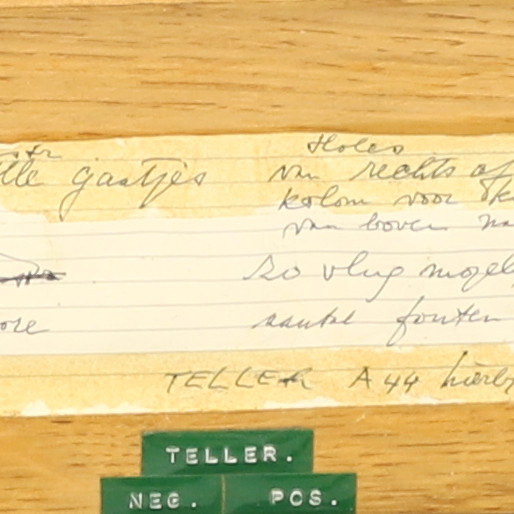 gaatjes
Holes
van rechts af
kolom voor
van boven na
zo vlug mogel
aantal fouten
ore
TELLER A44 hierb
TELLER.
NEG. POS.